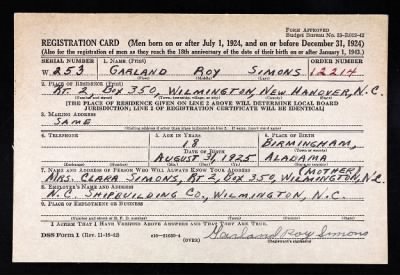 FORM APPROVED
Budget Bureau No. 33-R012-42
REGISTRATION CARD (Men born on or after July 1, 1924, and on or before December 31, 1924)
(Also for the registration of men as they reach the 18th anniversary of the date of their birth on or after January 1, 1943.)
SERIAL NUMBER 1. NAME (Print) ORDER NUMBER
W. 253 GARLAND ROY SIMONS 12214
(First) (Middle) (Last)
2. PLACE OF RESIDENCE (Print)
RT. 2 BOX 350, WILMINGTON, NEW HANOVER, N.C.
[THE PLACE OF RESIDENCE GIVEN ON LINE 2 ABOVE WILL DETERMINE LOCAL BOARD
JURISDICTION; LINE 2 OF REGISTRATION CERTIFICATE WILL BE IDENTICAL]
3. MAILING ADDRESS
SAME
4. TELEPHONE 5. AGE IN YEARS 6. PLACE OF BIRTH
18 BIRMINGHAM,
DATE OF BIRTH
AUGUST 31, 1925 ALABAMA
7. NAME AND ADDRESS OF PERSON WHO WILL ALWAYS KNOW YOUR ADDRESS (MOTHER)
MRS. CLARA SIMONS, RT. 2, BOX 350, WILMINGTON, N.C.
8. EMPLOYER'S NAME AND ADDRESS
N.C. SHIPBUILDING CO., WILMINGTON, N.C.
9. PLACE OF EMPLOYMENT OR BUSINESS
I AFFIRM THAT I HAVE VERIFIED ABOVE ANSWERS AND THAT THEY ARE TRUE.
DSS Form 1 (OVER) Garland Roy Simons
(Registrant's signature)